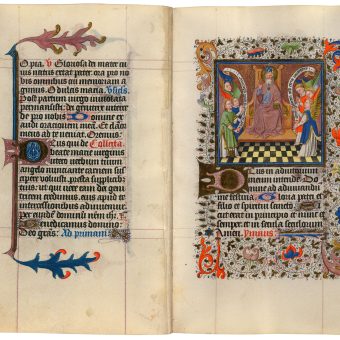 O pia. V Gloriosa dei mater cu
ius natus extat pater ora pro no
bis omnibus qui tui memoriam a
gimus. O dulcis maria. Vsus.
Post partum virgo inviolata
permansisti. dei genitrix interce
de pro nobis. Domine ex
audi orationem meam. Et clamor
meus ad te veniat. Oremus.
Deus qui de Collecta.
beate marie virginis
utero verbum tuum
angelo nunciante carnem sus
cipere voluisti. presta supplici
bus tuis: ut qui vere eam dei geni
tricem credimus: eius apud te
intercessionibus adiuvemur.
per eundem dominum nrm ihm.
Benedicamus domino.
Deo gras. Ad primam.
Deus in adiutorium
meum intende. Do
mine ad adiuvandum
me festina. Gloria patri et
filio et spiritui sancto.
Sicut erat in principio et nunc et
semper. et in secula seculorum
Amen.